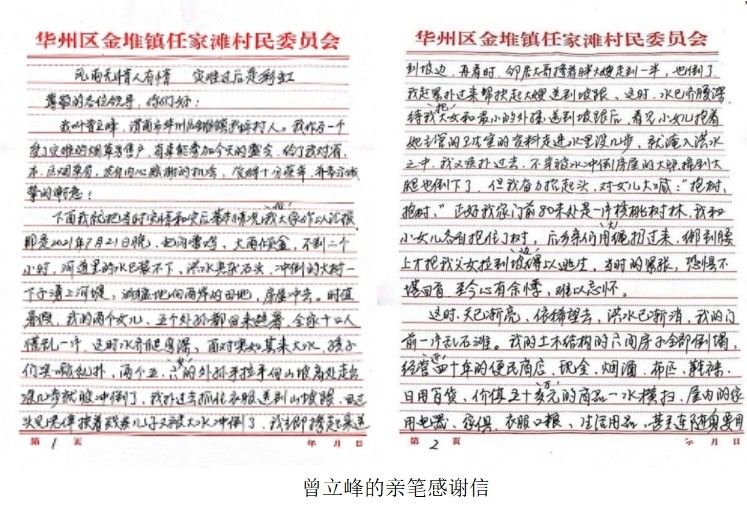 华州区金堆镇任家滩村民委员会
风雨无情人有情 灾难过后是彩虹
尊敬的各位领导，你们好：
我叫曾立峰，渭南市华州区金堆镇任家滩村人。我作为一个
受了灾难的烟草零售户，有幸能参加今天的
市、区烟草局，发自内心感谢的机会，觉得十分荣幸，并表示诚
挚的谢意！
下面我就把当时灾情和灾后基本情况给大家作以汇报
那是2021年7月21日晚，电闪雷鸣，大雨倾盆，不到二个
小时，河道里的水已装不下，洪水夹杂石头，冲倒的大树一
下子涌上河堤，向两岸的田地，房屋冲去。时值
暑假，我的两个女儿，五个外孙都回来避暑，全家十口人
慌乱一片，这时水齐腿更深，面对突如其来大水，孩子
们哭喊乱扑，两个五、六岁的外孙手拉手向山坡高处走去
没几步就被冲倒了，我扑过去抓住衣服送到山坡跟，
又被大水冲倒了，我立即
第1页 年 月 日
华州区金堆镇任家滩村民委员会
到坡边，再看时，邻居大哥搀着胖大嫂走到一半，也倒了
我赶紧扑过来帮扶起大嫂送到坡跟，这时，水已齐腰深，
待我把大女和最小的外孙送到坡跟后，看见小女儿抱着
她主管的卫生室的资料走进水里没几步，就淹入洪水
之中，我又猛扑过去，不幸被水冲倒房屋的大
腿也倒下了，但我奋力抬起头，对女儿大喊：“抱树，
抱树，”正好我家门前80米处是一片核桃树林，我和
小女儿各自抱住了树，后乡亲们用大绳扔过来，绑到腰
上才把我父女拉到坡边得以逃生，当时的紧张，恐惧不
堪回首，至今心有余悸，难以忘怀。
这时，天已渐亮，依稀望去，洪水已渐消，我的门
前一片乱石滩。我的土木结构的六间房子全部倒塌，
经营四十年的便民商店，现金，烟酒，布匹，鞋袜，
日用百货，价值五十多万元的商品一水横扫，屋内的家
用电器，家俱，衣服口粮，生活用品，甚至连随身费用
第2页 年 月 日
曾立峰的亲笔感谢信